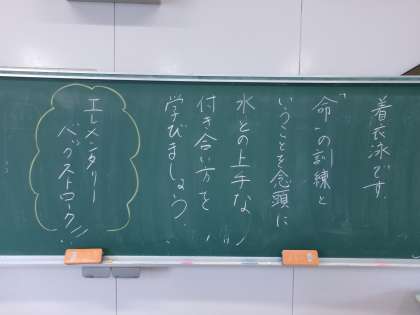 着衣泳です。
"命"の訓練と
いうことを念頭に
水との上手な
付き合い方を
学びましょう
エレメンタリー
バックストローク!!